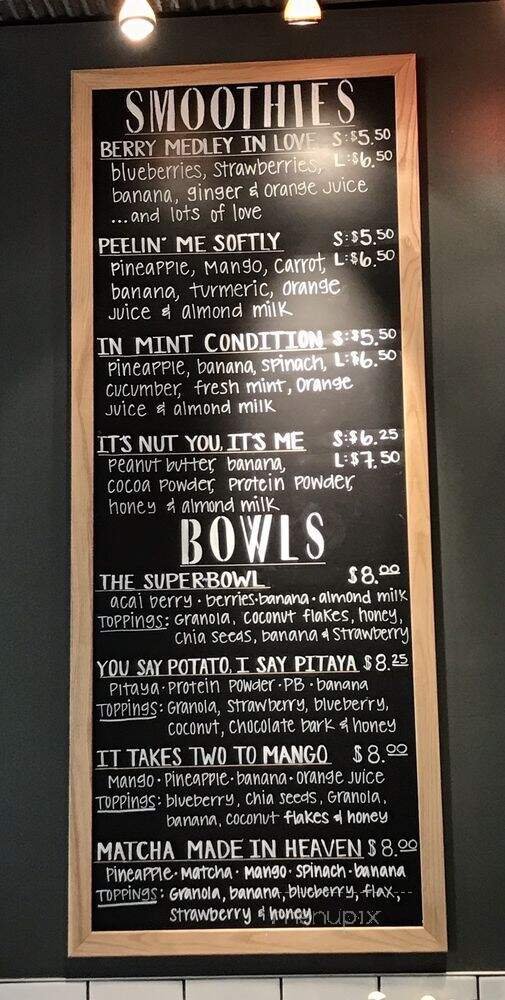 SMOOTHIES
BERRY MEDLEY IN LOVE S:$5.50
blueberries, strawberries, L:$6.50
banana, ginger & orange juice
...and lots of love
PEELIN' ME SOFTLY S:$5.50
Pineapple, mango, carrot, L:$6.50
banana, turmeric, orange
juice & almond milk
IN MINT CONDITION S:$5.50
Pineapple, banana, spinach, L:$6.50
cucumber, fresh mint, orange
juice & almond milk
IT'S NUT YOU, IT'S ME S:$6.25
Peanut butter, banana, L:$7.50
cocoa powder, protein powder,
honey & almond milk
BOWLS
THE SUPER-BOWL $8.00
acai berry • berries • banana • almond milk
TOPPINGS: Granola, coconut flakes, honey,
chia seeds, banana & strawberry
YOU SAY POTATO, I SAY PITAYA $8.25
Pitaya • Protein Powder • PB • banana
TOPPINGS: Granola, strawberry, blueberry,
coconut, chocolate bark & honey
IT TAKES TWO TO MANGO $8.00
Mango • Pineapple • banana • orange juice
TOPPINGS: blueberry, chia seeds, Granola,
banana, coconut flakes & honey
MATCHA MADE IN HEAVEN $8.00
Pineapple • Matcha • Mango • spinach • banana
TOPPINGS: Granola, banana, blueberry, flax,
strawberry & honey
menupix